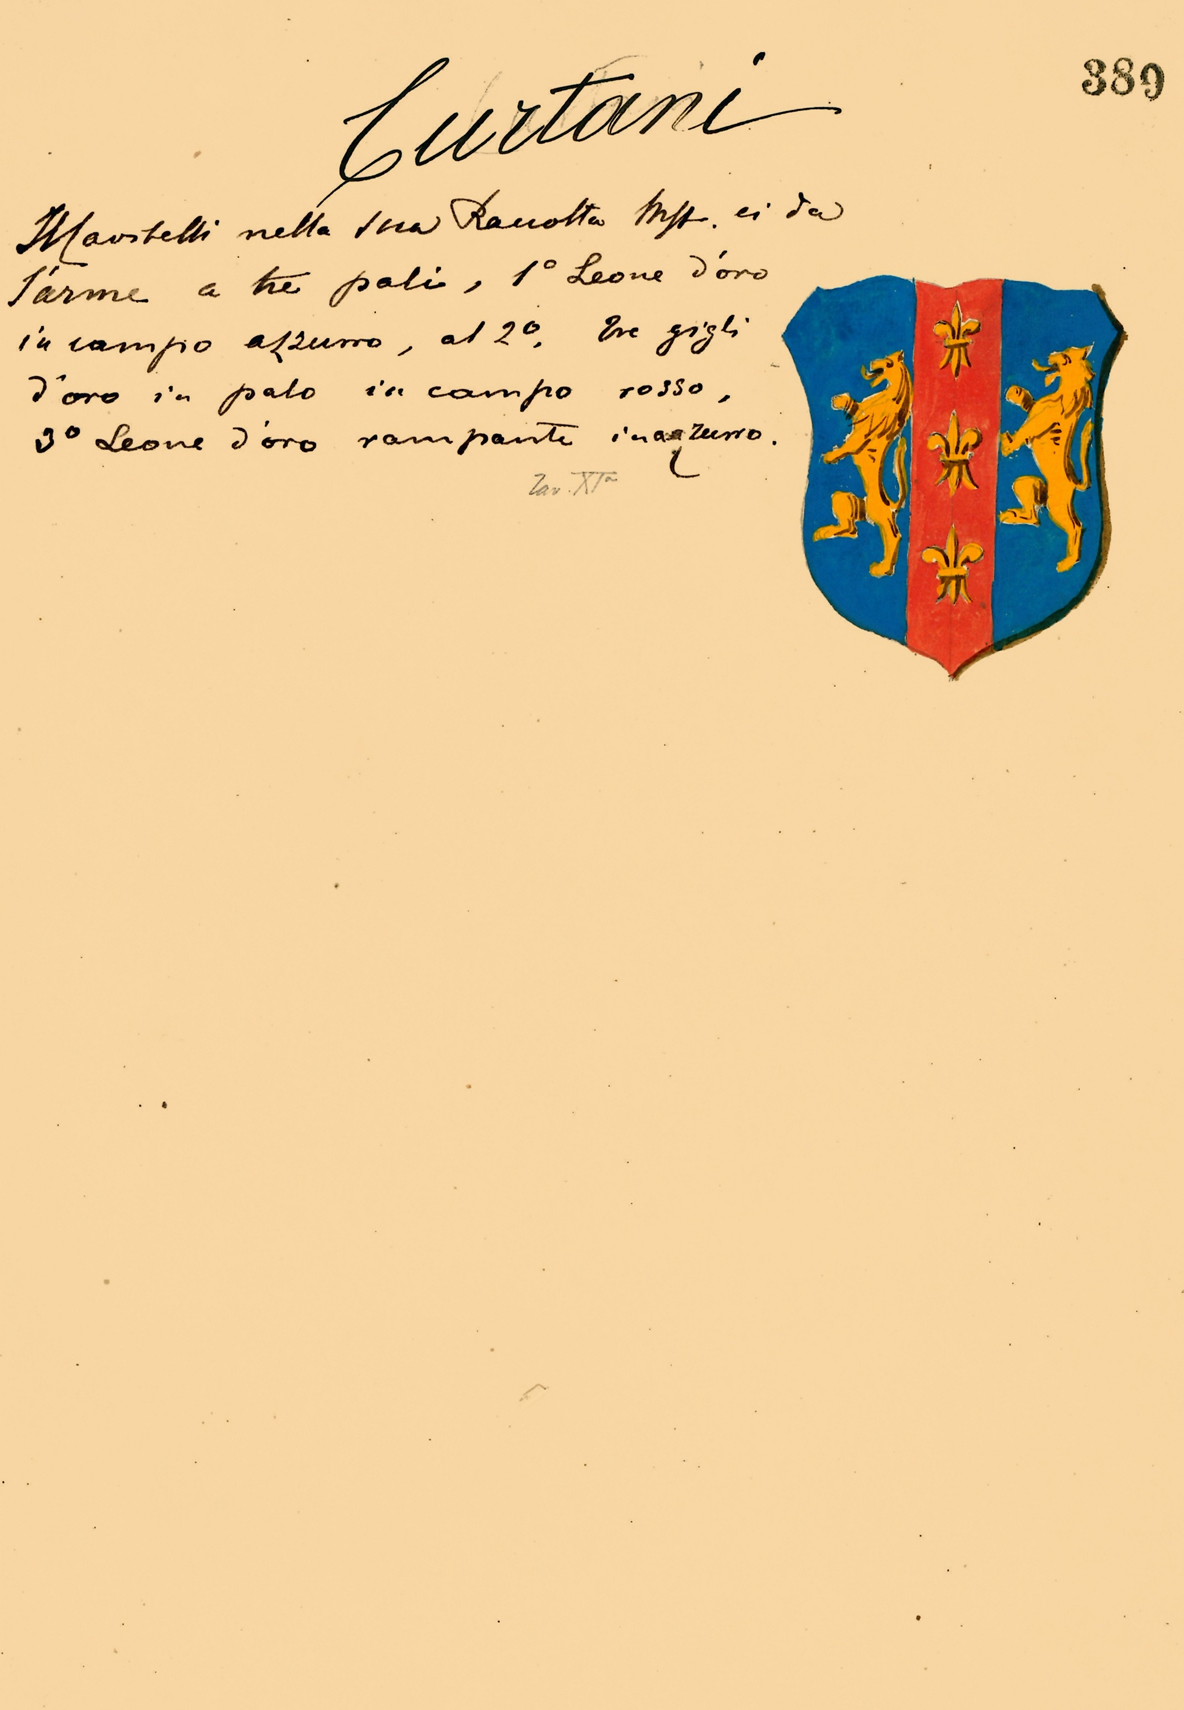 389
Curtani
nella sua Raccolta Mss. ci da
l'arme a tre pali, 1º Leone d'oro
in campo azzurro, al 2º, tre gigli
d'oro in palo in campo rosso,
3º Leone d'oro rampante in azzurro.
Tav. XIª